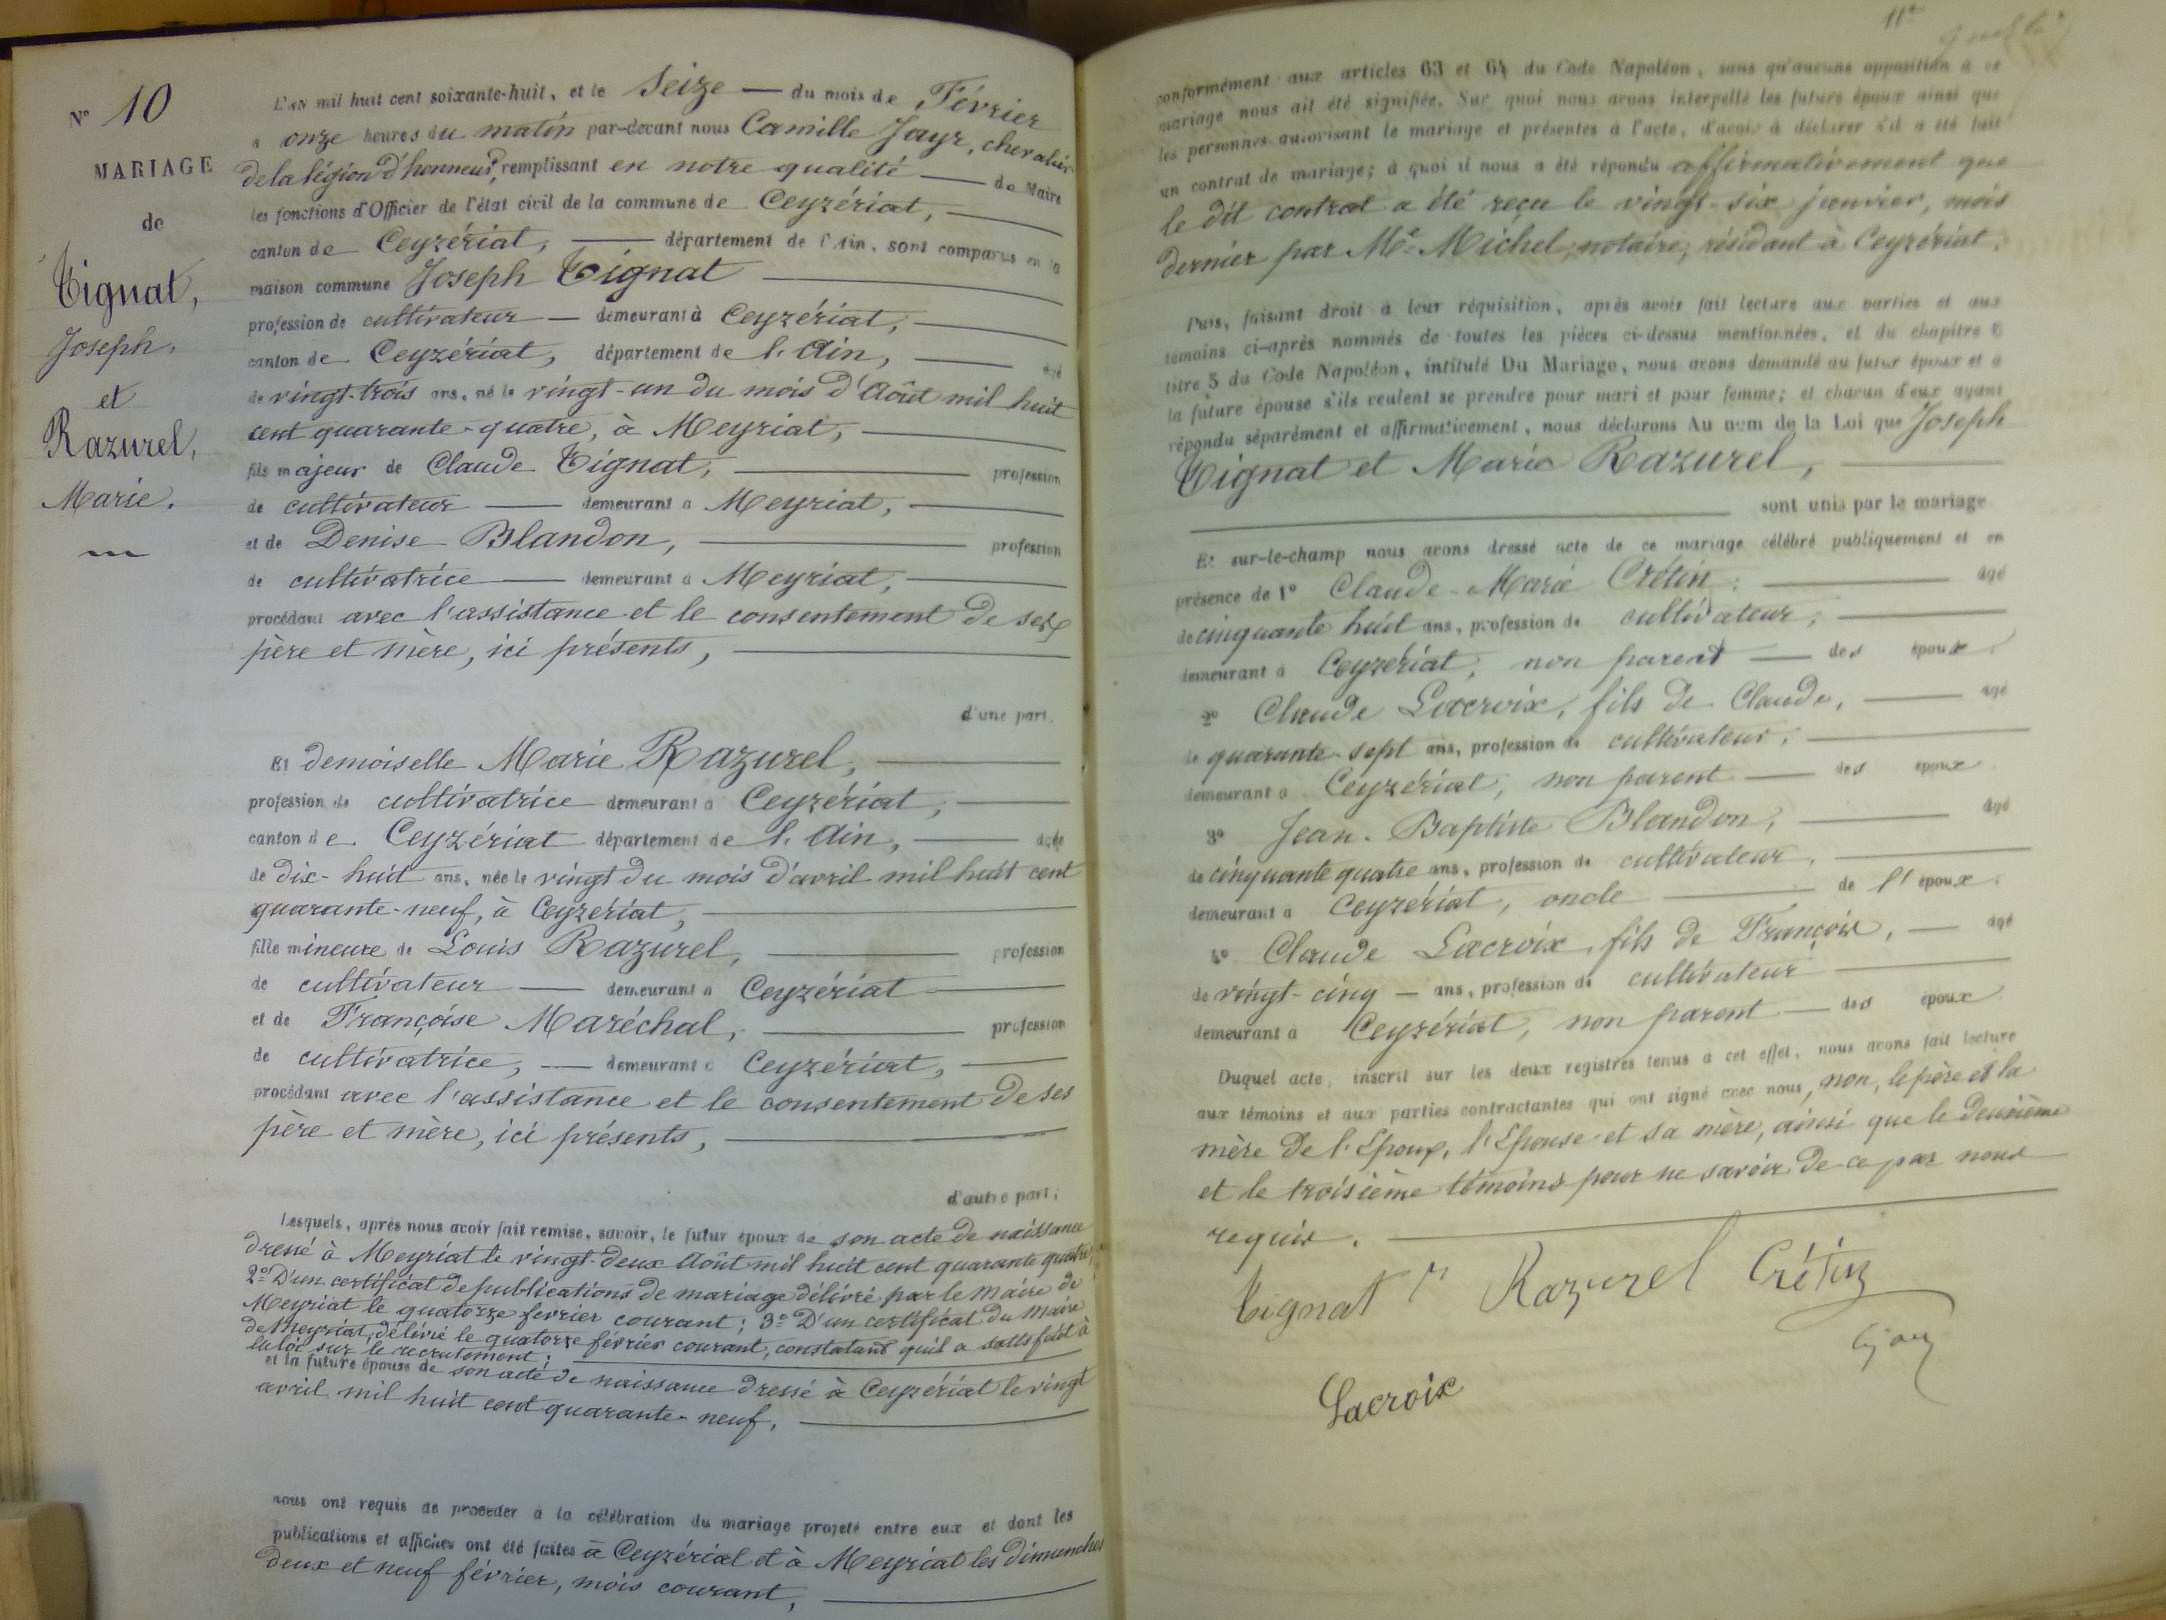 N° 10
MARIAGE
de
Tignat,
Joseph,
et
Razurel,
Marie.
L'AN mil huit cent soixante-huit, et le Seize — du mois de Février
à onze heures du matin par-devant nous Camille Jayr, chevalier
de la légion d'honneur, remplissant en notre qualité — de Maire
les fonctions d'Officier de l'état civil de la commune de Ceyzériat, —
canton de Ceyzériat, — département de l'Ain, sont comparus en la
maison commune Joseph Tignat —
profession de cultivateur — demeurant à Ceyzériat, —
canton de Ceyzériat, département de l'Ain, — âgé
de vingt-trois ans, né le vingt-un du mois d'Août mil huit
cent quarante-quatre, à Meyriat, —
fils majeur de Claude Tignat, — profession
de cultivateur — demeurant à Meyriat, —
et de Denise Blandon, — profession
de cultivatrice — demeurant à Meyriat, —
procédant avec l'assistance et le consentement de ses
père et mère, ici présents, —
d'une part.
Et demoiselle Marie Razurel, —
profession de cultivatrice demeurant à Ceyzériat, —
canton de Ceyzériat département de l'Ain, — âgée
de dix-huit ans, née le vingt du mois d'avril mil huit cent
quarante-neuf, à Ceyzériat, —
fille mineure de Louis Razurel, — profession
de cultivateur — demeurant à Ceyzériat —
et de Françoise Maréchal, — profession
de cultivatrice, — demeurant à Ceyzériat, —
procédant avec l'assistance et le consentement de ses
père et mère, ici présents, —
d'autre part;
Lesquels, après nous avoir fait remise, savoir, le futur époux de son acte de naissance
dressé à Meyriat le vingt-deux Août mil huit cent quarante quatre;
2° D'un certificat de publications de mariage délivré par le Maire de
Meyriat le quatorze fevrier courant; 3° D'un certificat du Maire
de Meyriat, délivré le quatorze février courant, constatant qu'il a satisfait à
la loi sur le recrutement; —
et la future épouse de son acte de naissance dressé à Ceyzériat le vingt
avril mil huit cent quarante-neuf, —
nous ont requis de procéder à la célébration du mariage projeté entre eux et dont les
publications et affiches ont été faites à Ceyzériat et à Meyriat les dimanches
deux et neuf février, mois courant, —
11e
conformément aux articles 63 et 64 du Code Napoléon, sans qu'aucune opposition à ce
mariage nous ait été signifiée. Sur quoi nous avons interpellé les futurs époux ainsi que
les personnes autorisant le mariage et présentes à l'acte, d'avoir à déclarer s'il a été fait
un contrat de mariage; à quoi il nous a été répondu affirmativement que
le dit contrat a été reçu le vingt-six janvier, mois
dernier par Me Michel, notaire, résidant à Ceyzériat.
Puis, faisant droit à leur réquisition, après avoir fait lecture aux parties et aux
témoins ci-après nommés de toutes les pièces ci-dessus mentionnées, et du chapitre 6
titre 5 du Code Napoléon, intitulé Du Mariage, nous avons demandé au futur époux et à
la future épouse s'ils veulent se prendre pour mari et pour femme; et chacun d'eux ayant
répondu séparément et affirmativement, nous déclarons Au nom de la Loi que Joseph
Tignat et Marie Razurel, —
— sont unis par le mariage
Et sur-le-champ nous avons dressé acte de ce mariage célébré publiquement et en
présence de 1° Claude-Marie Crétin, — âgé
de cinquante huit ans, profession de cultivateur, —
demeurant à Ceyzériat, non parent — des époux.
2° Claude Lacroix, fils de Claude, — âgé
de quarante-sept ans, profession de cultivateur, —
demeurant à Ceyzériat, non parent — des époux
3° Jean-Baptiste Blandon, — âgé
de cinquante quatre ans, profession de cultivateur, —
demeurant à Ceyzériat, oncle — de l'époux.
4° Claude Lacroix, fils de François, — âgé
de vingt-cinq — ans, profession de cultivateur —
demeurant à Ceyzériat, non parent — des époux
Duquel acte, inscrit sur les deux registres tenus à cet effet, nous avons fait lecture
aux témoins et aux parties contractantes qui ont signé avec nous, non, le père et la
mère de l'Epoux, l'Epouse et sa mère, ainsi que le deuxième
et le troisième témoins pour ne savoir de ce par nous
requis. —
Tignat Razurel Crétin
Jayr
Lacroix